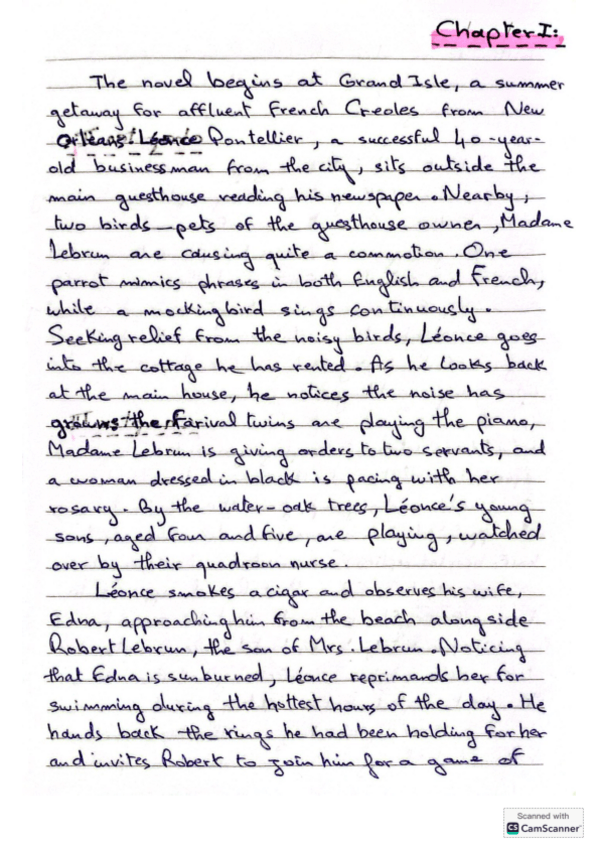 Chapter I:
The novel begins at Grand Isle, a summer
getaway for affluent French Creoles from New
Orleans. Léonce Pontellier, a successful 40-year-
old businessman from the city, sits outside the
main guesthouse reading his newspaper. Nearby,
two birds—pets of the guesthouse owner, Madame
Lebrun are causing quite a commotion. One
parrot mimics phrases in both English and French,
while a mockingbird sings continuously.
Seeking relief from the noisy birds, Léonce goes
into the cottage he has rented. As he looks back
at the main house, he notices the noise has
grown: the Farival twins are playing the piano,
Madame Lebrun is giving orders to two servants, and
a woman dressed in black is pacing with her
rosary. By the water-oak trees, Léonce's young
sons, aged four and five, are playing, watched
over by their quadroon nurse.
Léonce smokes a cigar and observes his wife,
Edna, approaching him from the beach alongside
Robert Lebrun, the son of Mrs. Lebrun. Noticing
that Edna is sunburned, Léonce reprimands her for
swimming during the hottest hours of the day. He
hands back the rings he had been holding for her
and invites Robert to join him for a game of
Scanned with
CS CamScanner